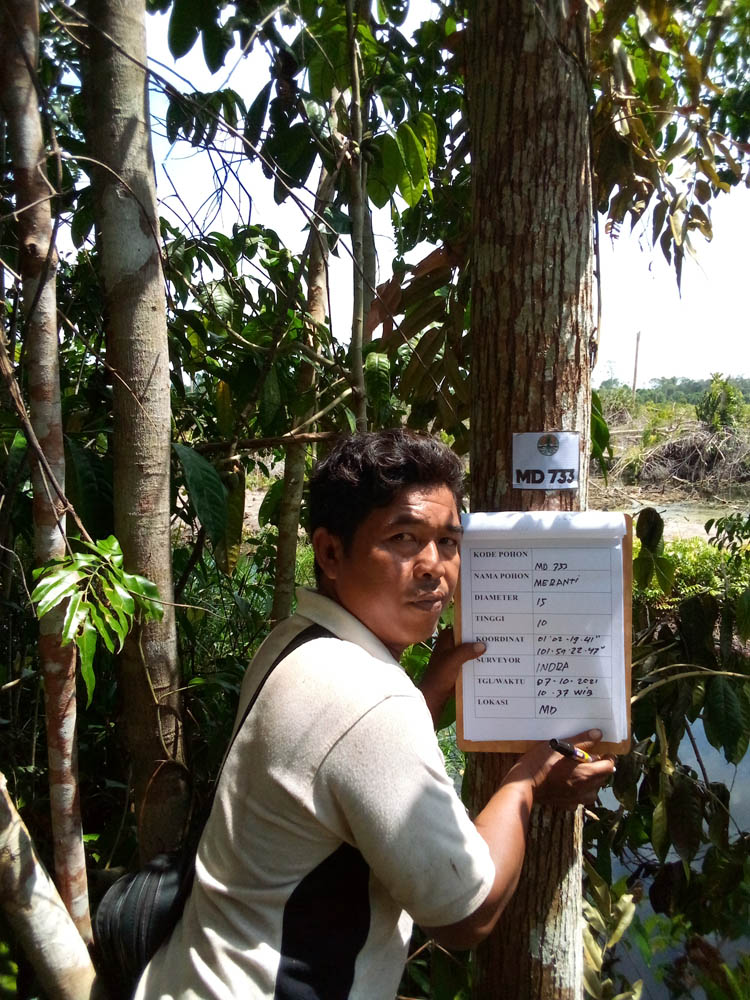 MD 733
KODE POHON MD 733
NAMA POHON MERANTI
DIAMETER 15
TINGGI 10
KOORDINAT 01°02'-19.41"
101-59-22-47"
SURVEYOR INDRA
TGL/WAKTU 07-10-2021
10.37 WIB
LOKASI MD